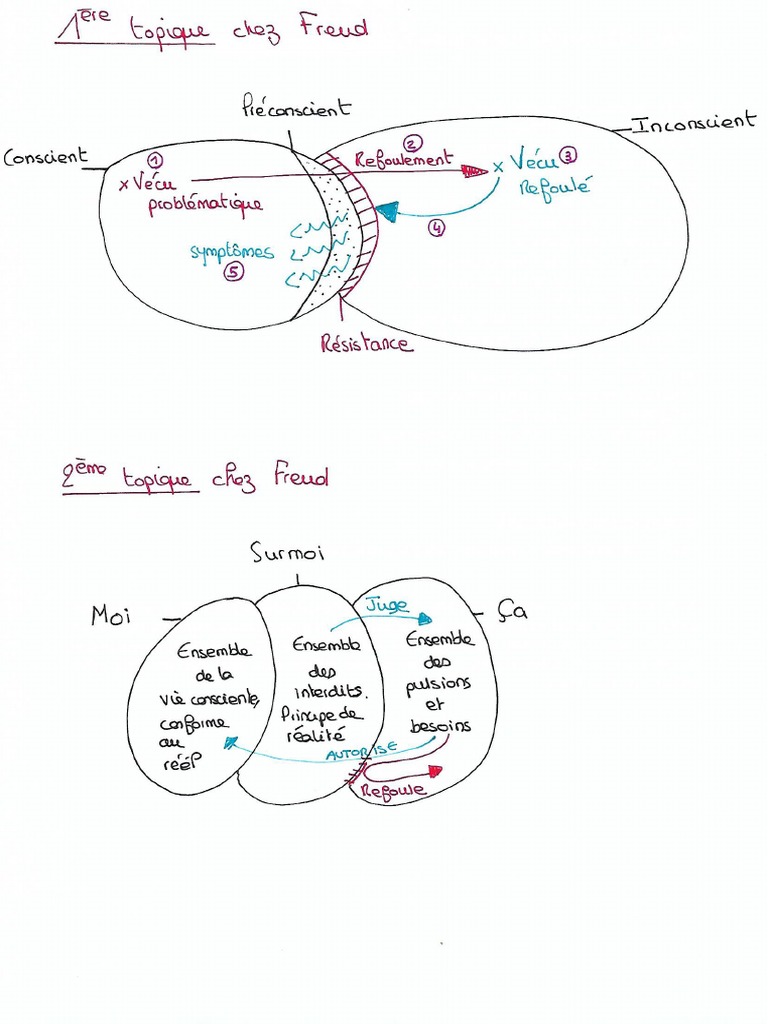 1ère topique chez Freud
Préconscient
Inconscient
Conscient
1
2
Refoulement
x Vécu
problématique
x Vécu 3
Refoulé
4
symptômes
5
Résistance
2ème topique chez Freud
Surmoi
Moi
Ça
Juge
Ensemble
de la
vie consciente,
conforme
au
réél
Ensemble
des
interdits.
Principe de
réalité
Ensemble
des
pulsions
et
besoins
AUTORISE
Refoule